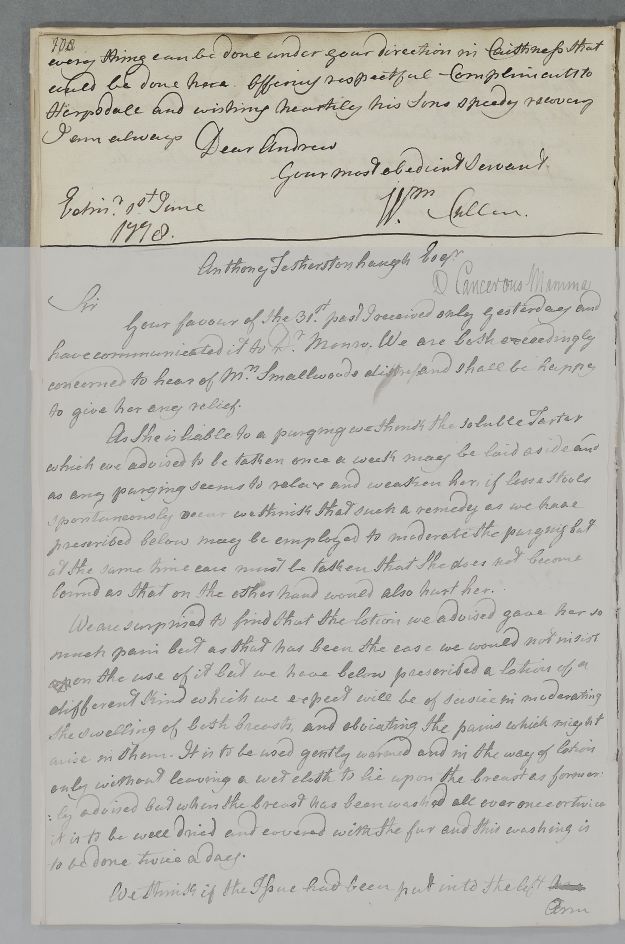 102
every thing can be done under your direction in Caithness that
could be done here. Offering respectful Compliments to
Harpsdale and wishing heartily his Sons speedy recovery
I am always Dear Andrew
Your most obedient Servant
Wm Cullen.
Edinr. 1st June
1778.
Anthony Fetherstonhaugh Esqr
D Cancerous Mamma
Sir
Your favour of the 31st. past I received only yesterday and
have communicated it to Dr. Monro. We are both exceedingly
concerned to hear of Mrs Smallwoods distress and shall be happy
to give her any relief.
As she is liable to a purging we think the soluble Tartar
which we advised to be taken once a week may be laid aside and
as any purging seems to relax and weaken her, if loose stools
spontaneously occur we think that such a remedy as we have
prescribed below may be employed to moderate the purging but
at the same time care must be taken that she does not become
bound as that on the other hand would also hurt her.
We are surprised to find that the lotion we advised gave her so
much pain but as that has been the case we would not insist
upon the use of it but we have below prescribed a lotion of a
different kind which we expect will be of service in moderating
the swelling of both breasts, and obviating the pains which might
arise in them. It is to be used gently warmed and in the way of lotion
only without leaving a wet cloth to lie upon the breast as former:
:ly advised but when the breast has been washed all over once or twice
it is to be well dried and covered with the fur and this washing is
to be done twice a day.
We think if the Issue had been put into the left
Arm